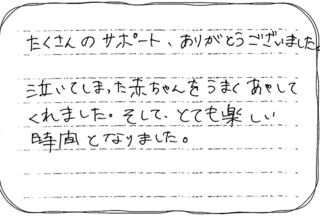 たくさんのサポート、ありがとうございました。
泣いてしまった赤ちゃんをうまくあやして
くれました。そして、とても楽しい
時間となりました。